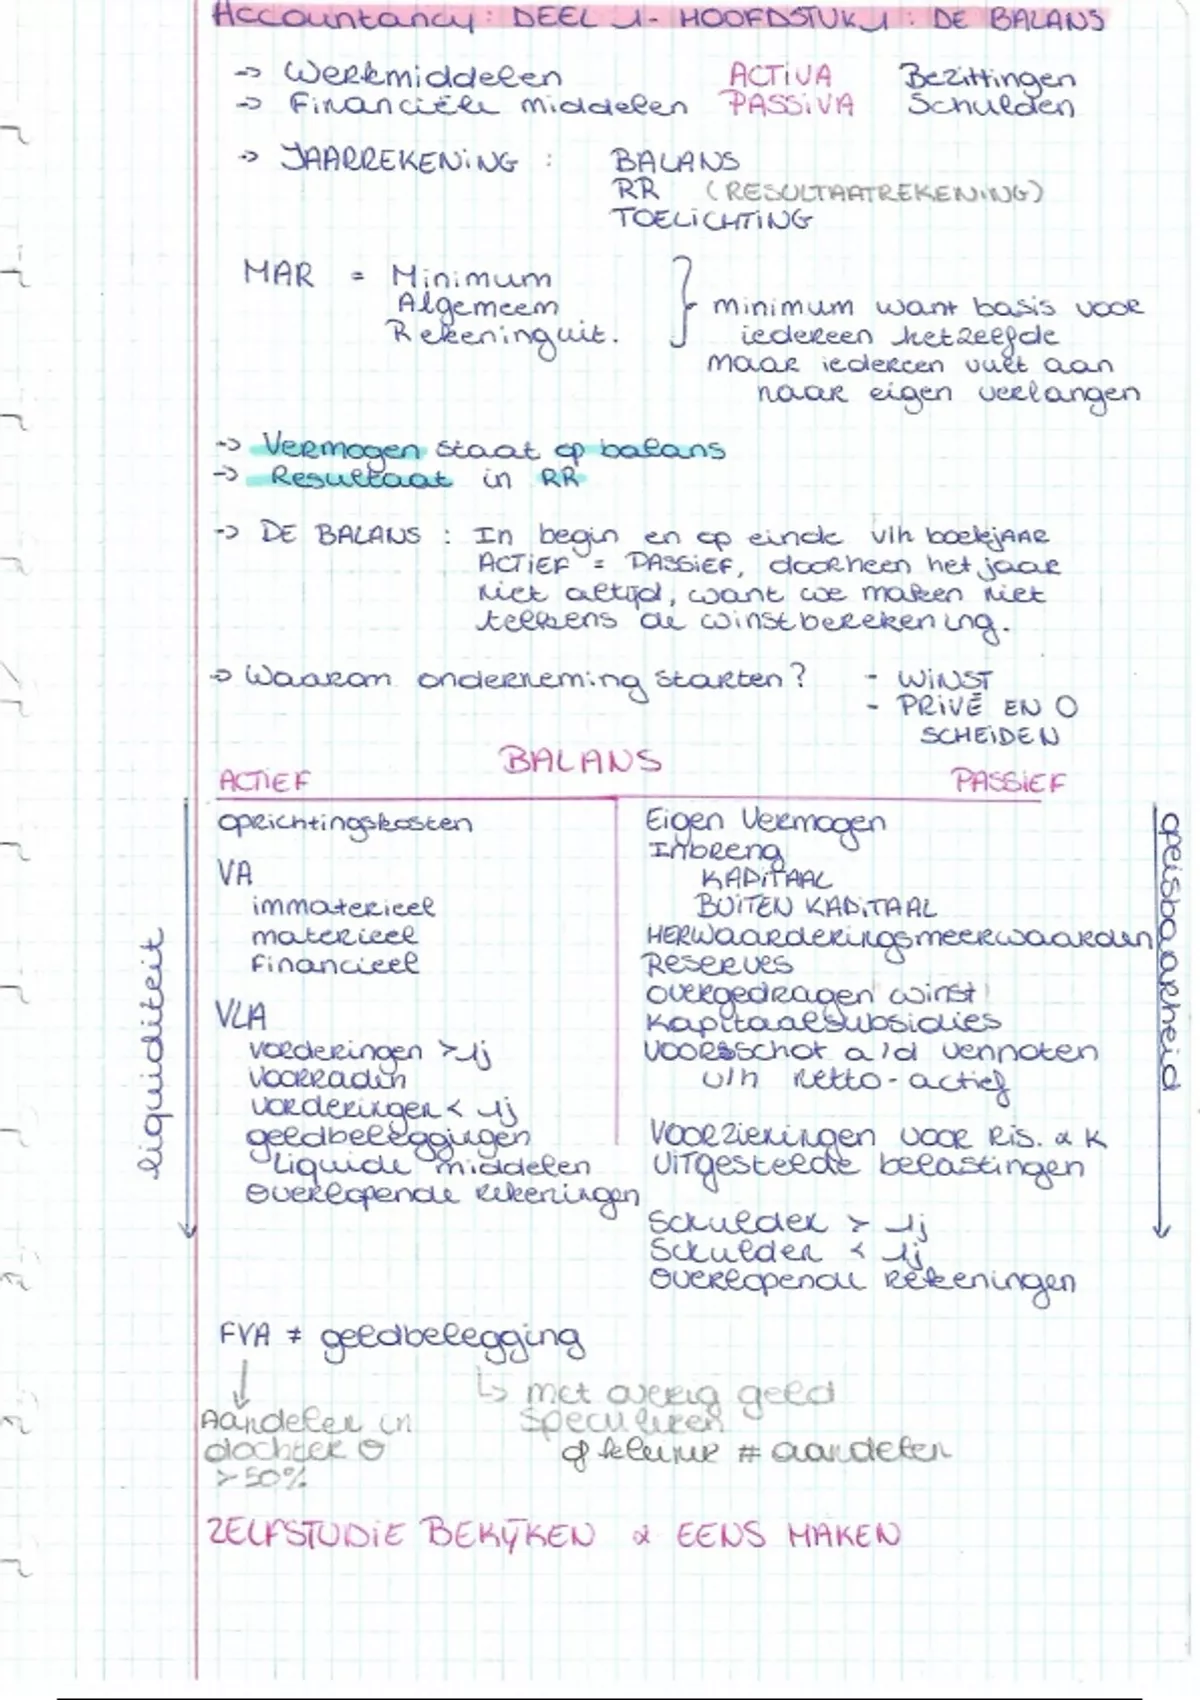 Accountancy: DEEL 1 - HOOFDSTUK 1 : DE BALANS
-> Werkmiddelen ACTIVA Bezittingen
-> Financiële middelen PASSIVA Schulden
-> JAARREKENING : BALANS
RR (RESULTAATREKENING)
TOELICHTING
MAR = Minimum
Algemeen
Rekeninguit.
} minimum want basis voor
iedereen hetzelfde
maar iedereen vult aan
naar eigen verlangen
-> Vermogen staat op balans
-> Resultaat in RR
-> DE BALANS : In begin en op einde v/h boekjaar
ACTIEF = PASSIEF, doorheen het jaar
niet altijd, want we maken niet
telkens de winstberekening.
-> Waarom onderneming starten? - WINST
- PRIVÉ EN O
SCHEIDEN
BALANS
ACTIEF PASSIEF
liquiditeit
oprichtingskosten
VA
immaterieel
materieel
financieel
VLA
vorderingen > 1j
voorraden
vorderingen < 1j
geldbeleggingen
Liquide middelen
overlopende rekeningen
Eigen Vermogen
Inbreng
KAPITAAL
BUITEN KAPITAAL
HERWaarderingsmeerwaarden
Reserves
overgedragen winst
kapitaalsubsidies
voorsschot a/d vennoten
v/h netto-actief
Voorzieningen voor Ris. & K
UITgestelde belastingen
Schulden > 1j
Schulden < 1j
overlopende rekeningen
opeisbaarheid
FVA ≠ geldbelegging
↓
Aandelen in
dochter O
> 50%
↳ met overig geld
speculeren
of kleine # aandelen
ZELFSTUDIE BEKIJKEN & EENS MAKEN